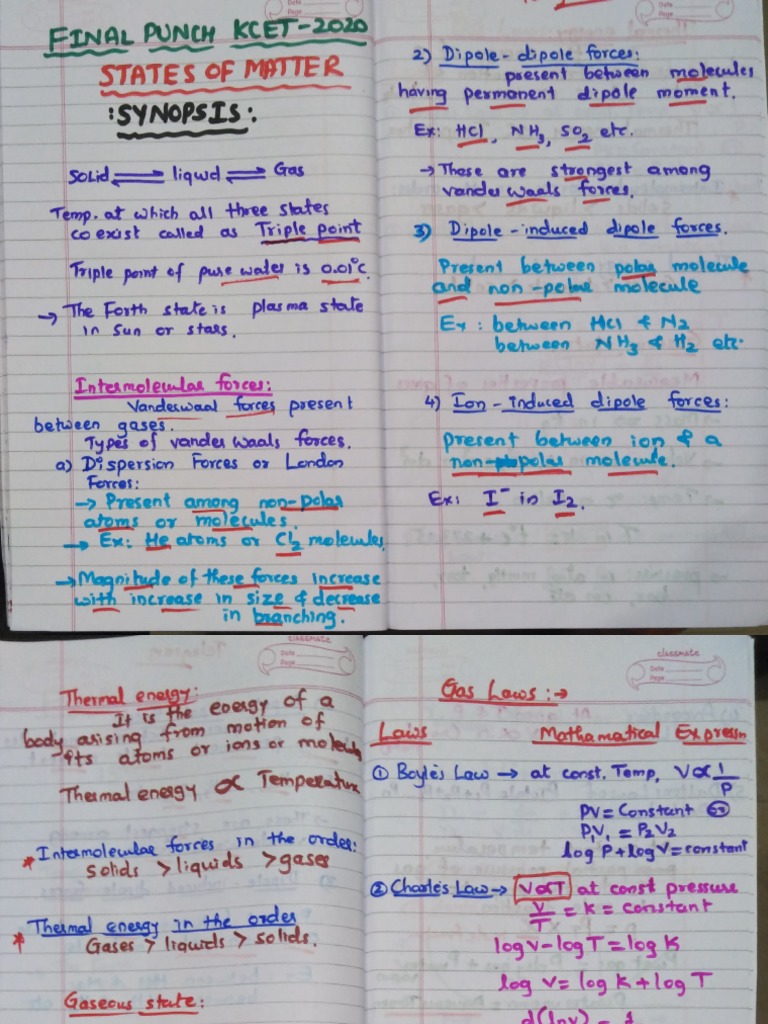 FINAL PUNCH KCET-2020
STATES OF MATTER
:SYNOPSIS:
Solid ⇌ liquid ⇌ Gas
Temp. at which all three states
co exist called as Triple point
Triple point of pure water is 0.01°c.
→ The Forth state is plasma state
in Sun or stars.
Intermolecular forces:
Vanderwaal forces present
between gases.
Types of vander waals forces.
a) Dispersion Forces or London
Forces:
→ Present among non-polar
atoms or molecules.
→ Ex: He atoms or Cl₂ molecules
→ Magnitude of these forces increase
with increase in size & decrease
in branching.
2) Dipole-dipole forces:
present between molecules
having permanent dipole moment.
Ex: HCl, NH₃, SO₂ etc.
→ These are strongest among
vander waals forces.
3) Dipole-induced dipole forces.
Present between polar molecule
and non-polar molecule
Ex: between HCl & N₂
between NH₃ & H₂ etc.
4) Ion-induced dipole forces:
Present between ion & a
non-polar molecule.
Ex: I⁻ in I₂.
classmate
Date
Page
Thermal energy:
It is the energy of a
body arising from motion of
its atoms or ions or molecules
Thermal energy ∝ Temperature
* Intermolecular forces in the order:
solids > liquids > gases
* Thermal energy in the order
Gases > liquids > solids.
Gaseous state:
classmate
Date
Page
Gas Laws:→
Laws Mathamatical Expressn
① Boyle's Law → at const. Temp, V∝1/P
PV = Constant or
P₁V₁ = P₂V₂
log P + log V = constant
② Charle's Law → V∝T at const pressure
V/T = K = constant
log V - log T = log K
log V = log K + log T